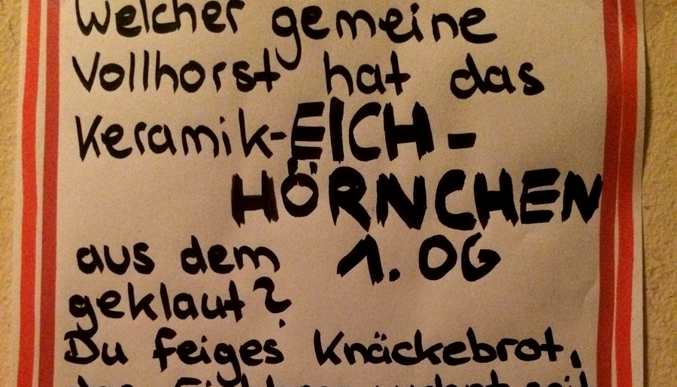 Welcher gemeine
Vollhorst hat das
Keramik-EICH-
HÖRNCHEN
aus dem 1. OG
geklaut?
Du feiges Knäckebrot,